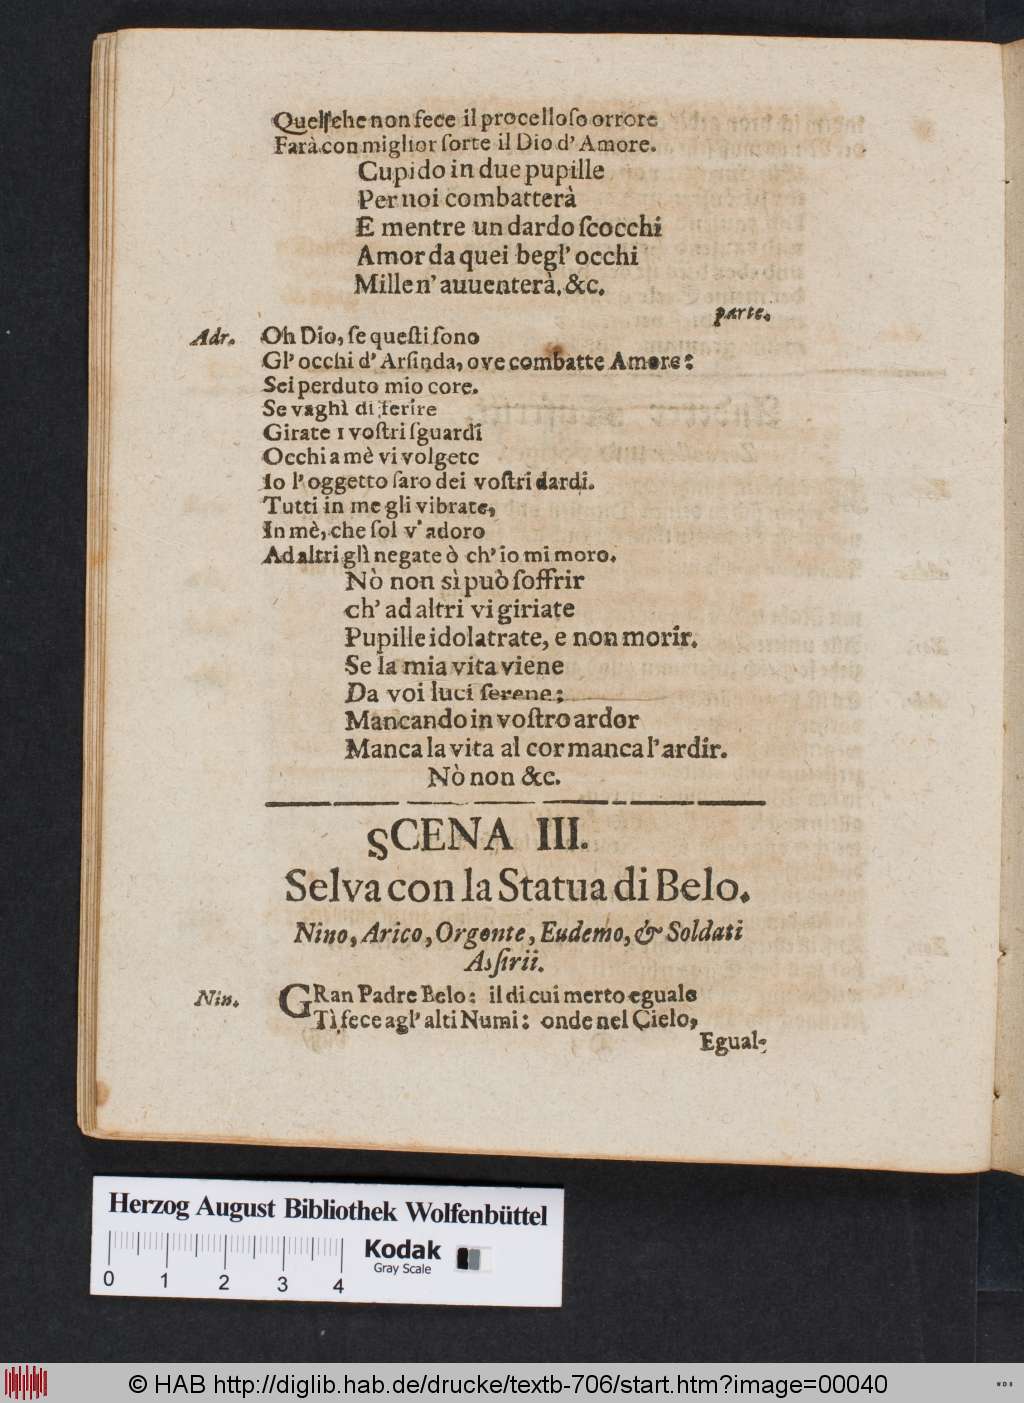 Quelſche non fece il procelloſo orrore
Farà con miglior ſorte il Dio d' Amore.
Cupido in due pupille
Per noi combatterà
E mentre un dardo ſcocchi
Amor da quei begl' occhi
Mille n' auuenterà. &c.
parte.
Adr. Oh Dio, ſe queſti ſono
Gl' occhi d' Arſinda, ove combatte Amore:
Sei perduto mio core.
Se vaghì di ferire
Girate i voſtri ſguardi
Occhi a mè vi volgete
Io l' oggetto ſaro dei voſtri dardi.
Tutti in me gli vibrate,
In mè, che ſol v' adoro
Ad altri glì negate ò ch' io mi moro.
Nò non sì può ſoffrir
ch' ad altri vi giriate
Pupille idolatrate, e non morir.
Se la mia vita viene
Da voi luci ſerene;
Mancando in voſtro ardor
Manca la vita al cor manca l' ardir.
Nò non &c.
SCENA III.
Selva con la Statua di Belo.
Nino, Arico, Orgonte, Eudemo, & Soldati
Asſirii.
Nin. GRan Padre Belo: il di cui merto eguale
Tì fece agl' alti Numi: onde nel Cielo,
Egual-
Herzog August Bibliothek Wolfenbüttel
0 1 2 3 4
Kodak
Gray Scale
© HAB http://diglib.hab.de/drucke/textb-706/start.htm?image=00040
WDB